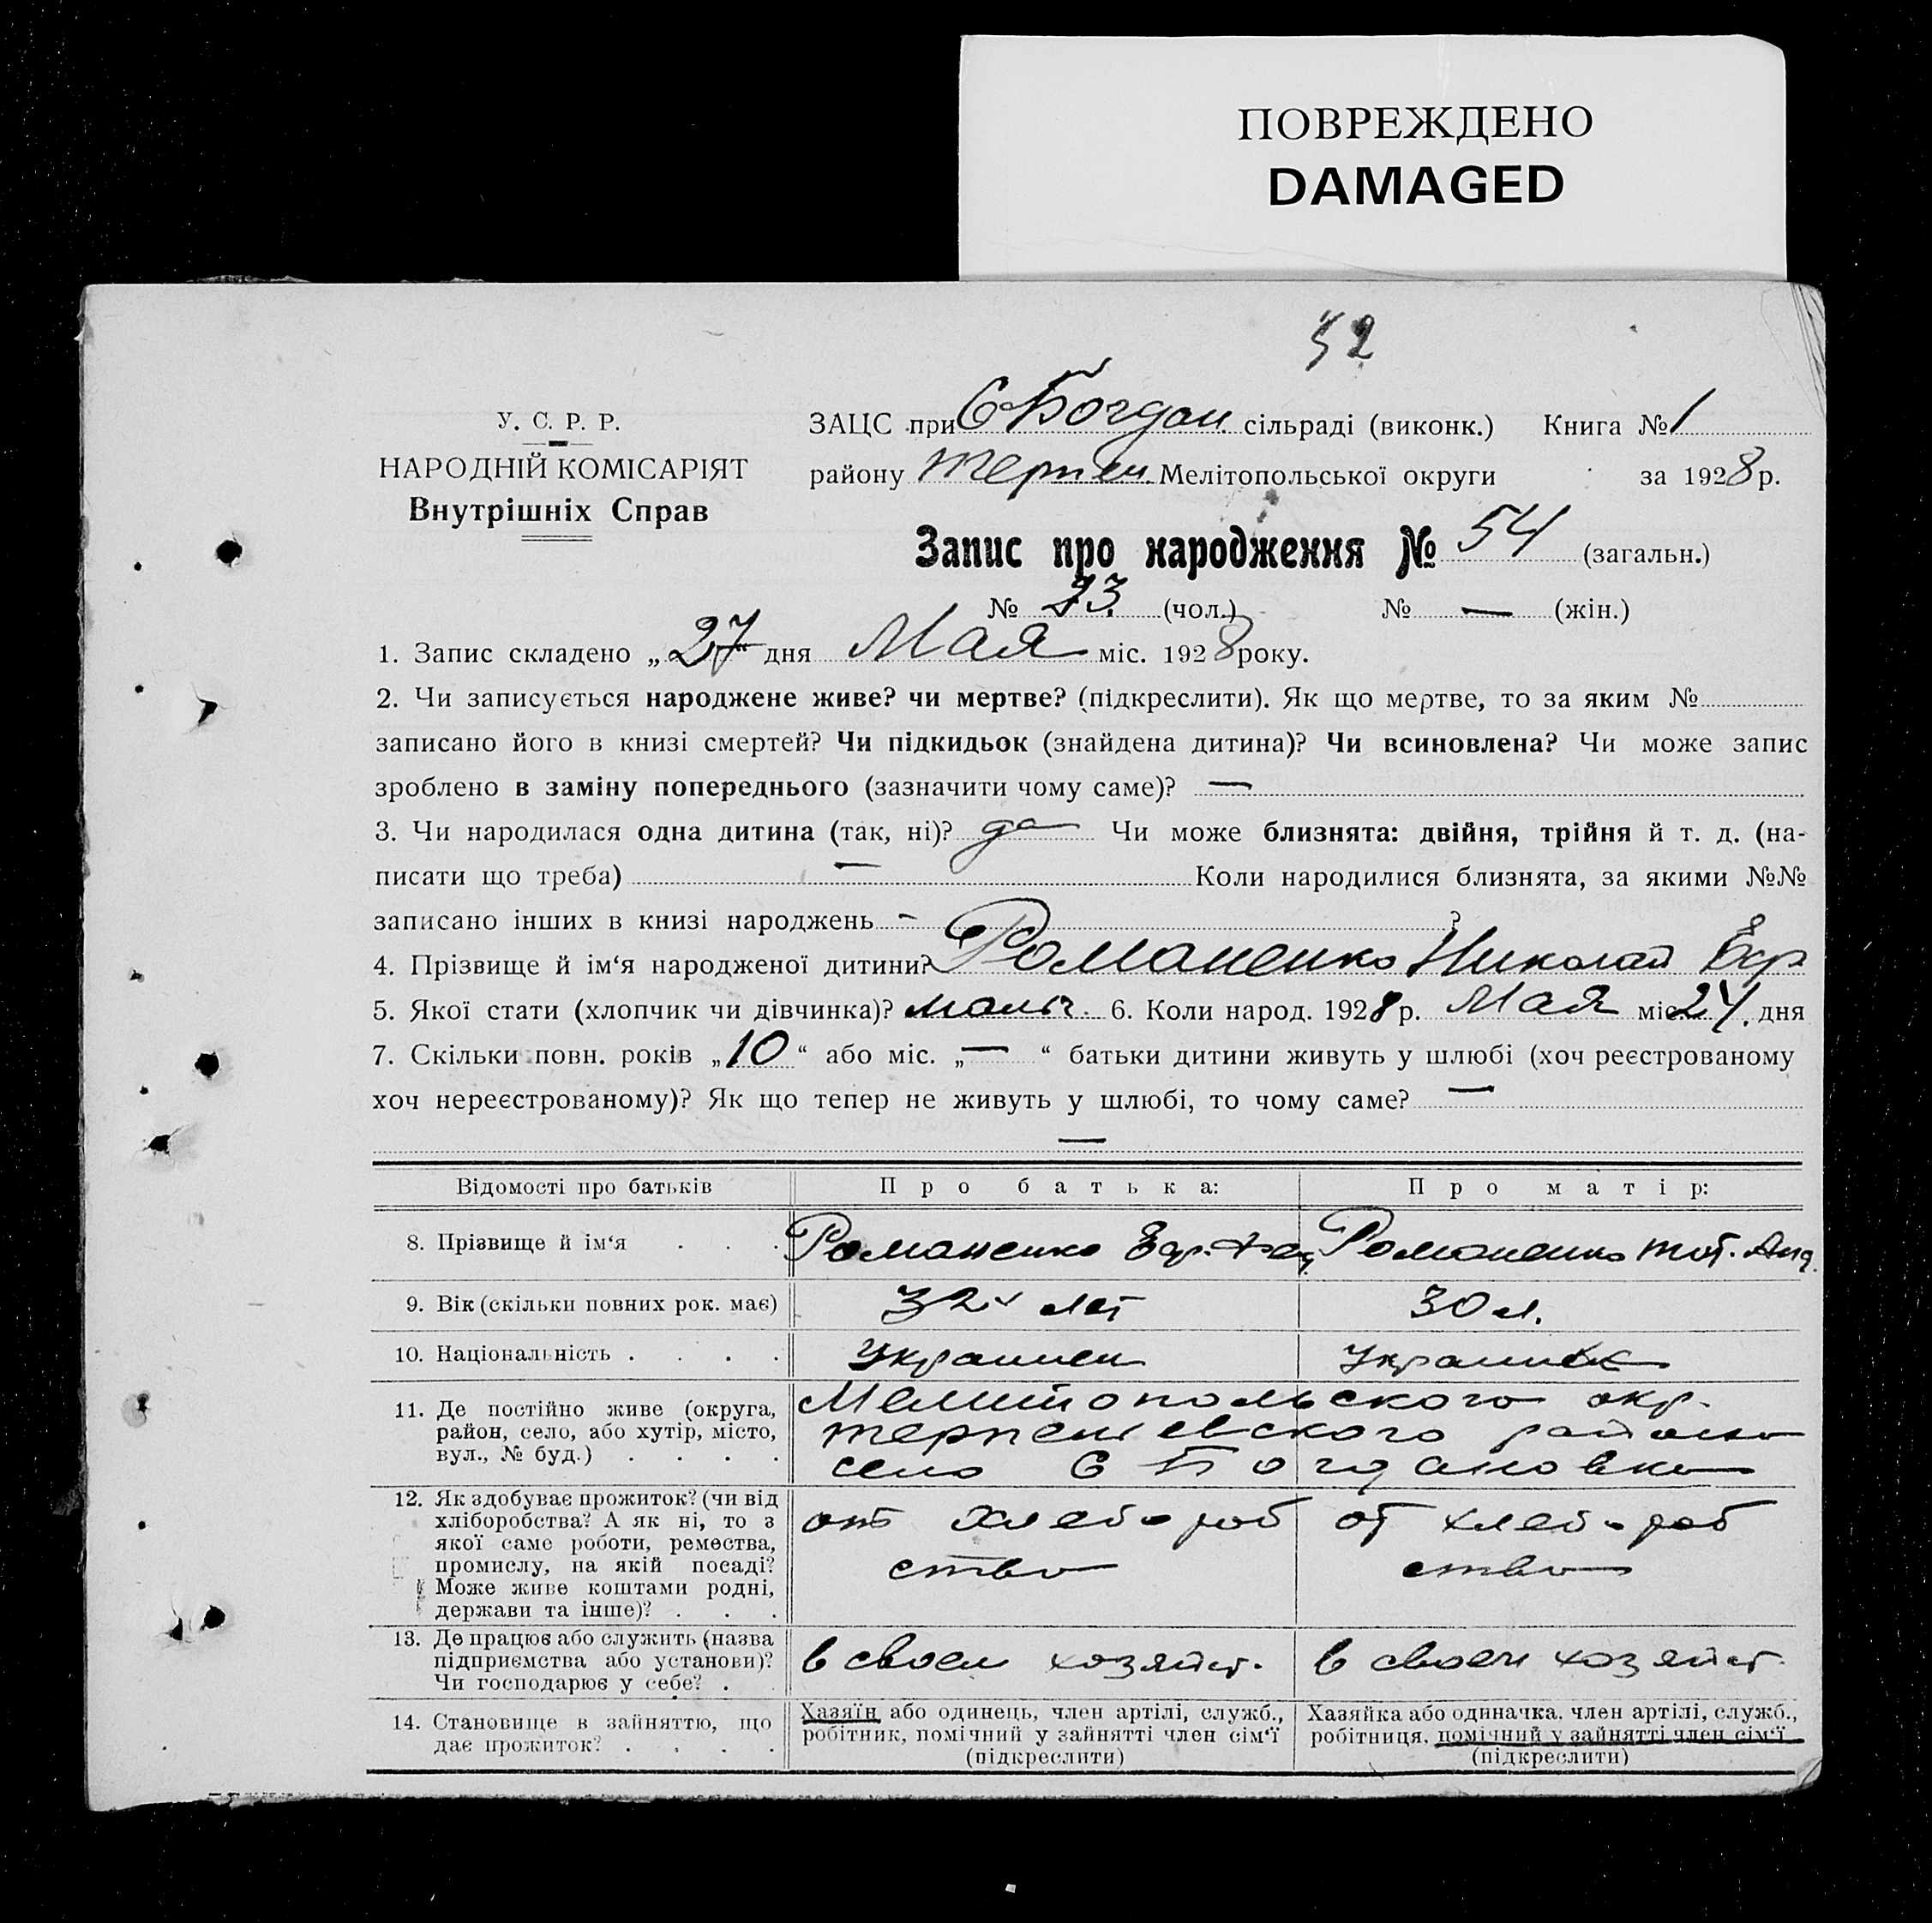 ПОВРЕЖДЕНО
DAMAGED
52
У. С. Р. Р.
НАРОДНІЙ КОМІСАРІЯТ
Внутрішніх Справ
ЗАЦС при С Богдан сільраді (виконк.) Книга № 1
району Терпен Мелітопольської округи за 1928 р.
Запис про народження № 54 (загальн.)
№ 23 (чол.) № — (жін.)
1. Запис складено „27“ дня Мая міс. 1928 року.
2. Чи записується народжене живе? чи мертве? (підкреслити). Як що мертве, то за яким №
записано його в книзі смертей? Чи підкидьок (знайдена дитина)? Чи всиновлена? Чи може запис
зроблено в заміну попереднього (зазначити чому саме)? —
3. Чи народилася одна дитина (так, ні)? да Чи може близнята: двійня, трійня й т. д. (на-
писати що треба) — Коли народилися близнята, за якими №№
записано інших в книзі народжень - ?
4. Прізвище й ім‘я народженої дитини? Романенко Николай Ефр
5. Якої стати (хлопчик чи дівчинка)? мальч. 6. Коли народ. 1928 р. Мая міс. 24. дня
7. Скільки повн. років „10“ або міс. „—“ батьки дитини живуть у шлюбі (хоч реєстрованому
хоч нереєстрованому)? Як що тепер не живуть у шлюбі, то чому саме? —
—
Відомості про батьків Про батька: Про матір:
8. Прізвище й ім‘я . . . Романенко Ефр. Романенко Анд.
9. Вік (скільки повних рок. має) 32 лет 30 л.
10. Національність . . . . Украинец Украинк
11. Де постійно живе (округа, район, село, або хутір, місто, вул., № буд.) . . . .
Мелитопольского окр.
терпеньевского района
село С Богдановка
12. Як здобуває прожиток? (чи від хліборобства? А як ні, то з якої саме роботи, ремества, промислу, на якій посаді? Може живе коштами родні, держави та інше)? . . .
от хлебороб от хлебороб
ство ство
13. Де працює або служить (назва підприємства або установи)? Чи господарює у себе? .
в своем хозяйст. в своем хозяйст.
14. Становище в зайняттю, що дає прожиток? . . . .
Хазяїн або одинець, член артілі, служб., робітник, помічний у зайнятті член сім‘ї (підкреслити)
Хазяйка або одиначка, член артілі, служб., робітниця, помічний у зайнятті член сім‘ї (підкреслити)